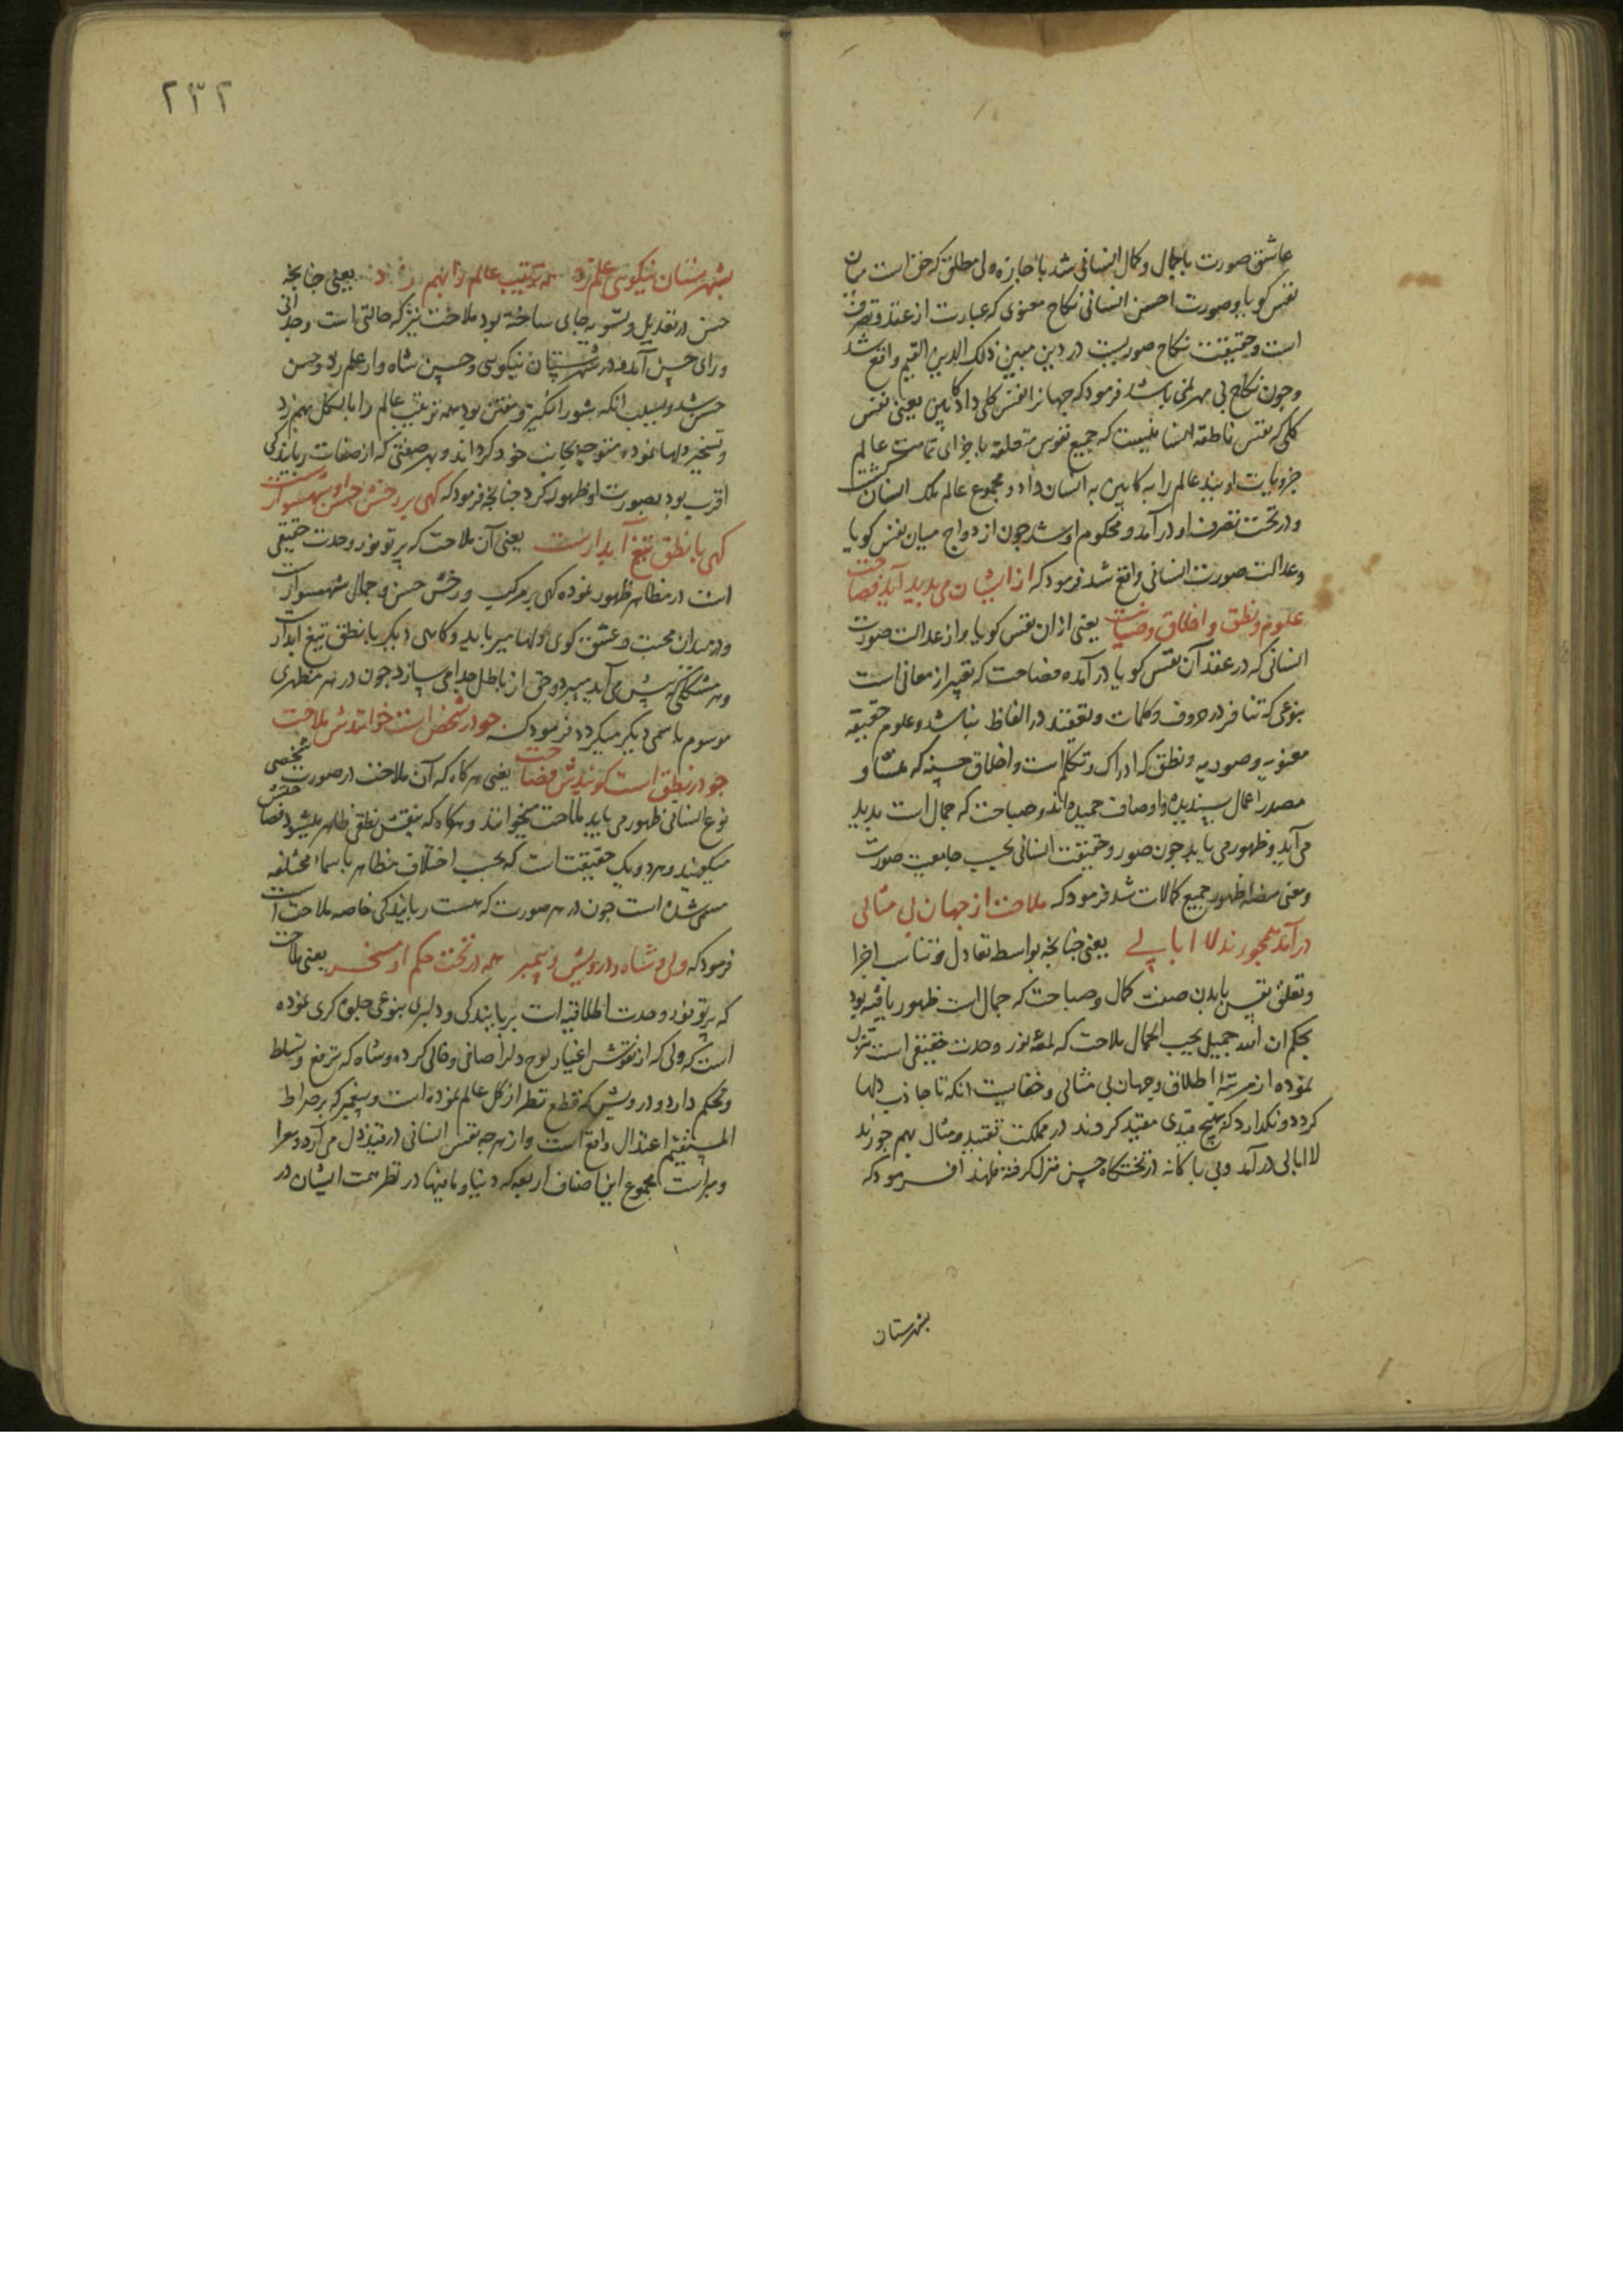 عاشق صورت با جمال و کمال انسانی شد با جازه ولی مطلق که حق است میان
نفس کویا و صورت احسن انسانی نکاح معنوی که عبارت از عقد و تصرف
است و حقیقت نکاح صوریست در دین مبین ذلک الدین القیم واقع شد
و چون نکاح بی مهر نمی باشد فرمود که جهانرا نفس کلی داد کابین یعنی نفس
کلی که نفس ناطقه انسانیست که جمیع نفوس متعلقه باجزای تمامت عالم
جزویات اویند عالم را به کابین به انسان داد و مجموع عالم ملک انسان کشت
و در تحت تصرف او درآمد و محکوم او شد چون ازدواج میان نفس کویا
و عدالت صورت انسانی واقع شد فرمود که از ایشان می پدید آید فصاحت
علوم و نطق و اخلاق و صباحت یعنی ازان نفس کویا و از عدالت صورت
انسانی که در عقد آن نفس کویا درآمده فصاحت که تعبیر از معانی است
بنوعی که تنافر در حروف و کلمات و تعقید در الفاظ نباشد و علوم حقیقیه
معنویه و صوریه و نطق که ادراک و تکلم است و اخلاق حسنه که منشا و
مصدر اعمال پسندیده و اوصاف حمیده اند و صباحت که جمال است پدید
می آید و ظهور می یابد چون صور و حقیقت انسانی بحسب جامعیت صورت
و معنی منصه ظهور جمیع کمالات شد فرمود که ملاحت از جهان بی مثالی
درآمد همچو رند لا ابالے یعنی چنانچه بواسطه تعادل و تناسب اجزا
و تعلق نفس بابدن صفت کمال و صباحت که جمال است ظهور یافته بود
بحکم ان الله جمیل یحب الجمال ملاحت که لمعه نور وحدت حقیقی است تنزل
نموده از مرتبه اطلاق و جهان بی مثالی و خفاییت انکه تا جاذب دلها
کردد و نکذارد که بهیچ قیدی مقید کروند در مملکت تقیید و مثال بهم چو رند
لا ابالی درآمد و بی باکانه در تختکاه حسن منزل کرفته فلهذا فرمود که
بشهرستان
۲۳۲
بشهرستان نیکویی علم زد همه ترتیب عالم را بهم زد یعنی چنانچه
حسن در تعدیل و تسویه جای ساخته بود ملاحت نیز که حالتی است وجدانی
ورای حسن آمد و در شهرستان نیکویی و حسن شاه وار علم زد و حسن
حسن شد و بسبب انکه شور انکیز و مفتن بود همه ترتیب عالم را بالکل بهم زد
و تسخیر دلها نموده متوجه بجانب خود کرداند و بهر صفتی که از صفات ربایندکی
اقرب بود بصورت او ظهور کرد چنانچه فرمود که کهی بر رخش حسن او شهسوارست
کهی با نطق تیغ آبدارست یعنی آن ملاحت که پرتو نور وحدت حقیقی
است در مظاهر ظهور نموده کهی بر مرکب و رخش حسن و جمال شهسوارست
و در میدان محبت و عشق کوی دلها میرباید و کاهی دیکر با نطق تیغ آبدارست
و هر مشکلی که پیش می آید میبرد و حق از باطل جدا می سازد چون در هر مظهری
موسوم باسمی دیکر میکردد فرمود که چو در شخص است خوانندش ملاحت
چو در نطق است کویندش فصاحت یعنی هرکاه که آن ملاحت در صورت شخصی
نوع انسانی ظهور می یابد ملاحتش میخوانند و هرکاه که بنقش نطقی ظاهر میشود فصاحتش
میکویند و هر دو یک حقیقت است که بحسب اختلاف مظاهر باسماء مختلفه
مسمی شده است چون در هر صورت که هست ربایندکی خاصه ملاحت است
فرمود که ولی و شاه و درویش و پیمبر همه در تحت حکم او مسخر یعنی ملاحت
که پرتو نور وحدت اطلاقیه است بربایندکی و دلبری بنوعی جلوه کری نموده
است که ولی که از نقوش اغیار لوح دلرا صافی و خالی کرده و شاه که ترفع و تسلط
و تحکم دارد و درویش که قطع نظر از کل عالم نموده است و پیغمبر که بر صراط
المستقیم اعتدال واقع است و از هرچه نفس انسانی در قید ذل می آرد و معرا
و مبراست مجموع این اصناف اربعه که دنیا و مافیها در نظر همت ایشان در